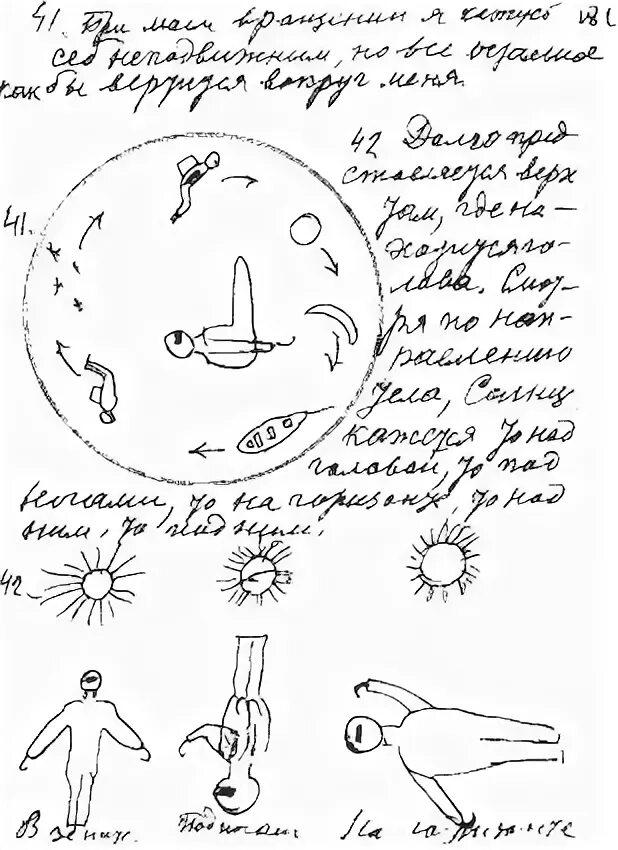 41. При моем вращении я кажусь
себе неподвижным, но все остальное
как бы вертится вокруг меня.
42 Долго пред
ставляется верх
там, где на-
ходится го-
лова. Смот-
ря по нап-
равлению
тела, Солнце
кажется то над
головой, то под
ногами, то на горизонте, то над
ним, то под ним.
41.
42.
В зените
Под ногами
На горизонте